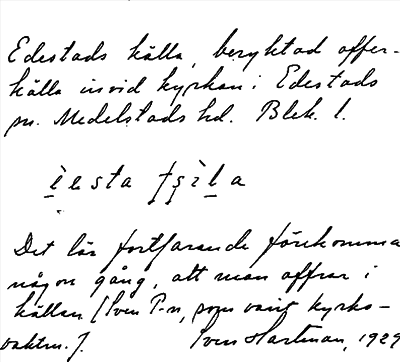 Edestads källa, beryktad offer-
källa invid kyrkan i Edestads
sn. Medelstads hd. Blek. l.
ìesta tşìla
Det lär fortfarande förekomma
någon gång, att man offrar i
källan [Sven P-n, som varit kyrko-
vaktm.].
Sven Hartman, 1929